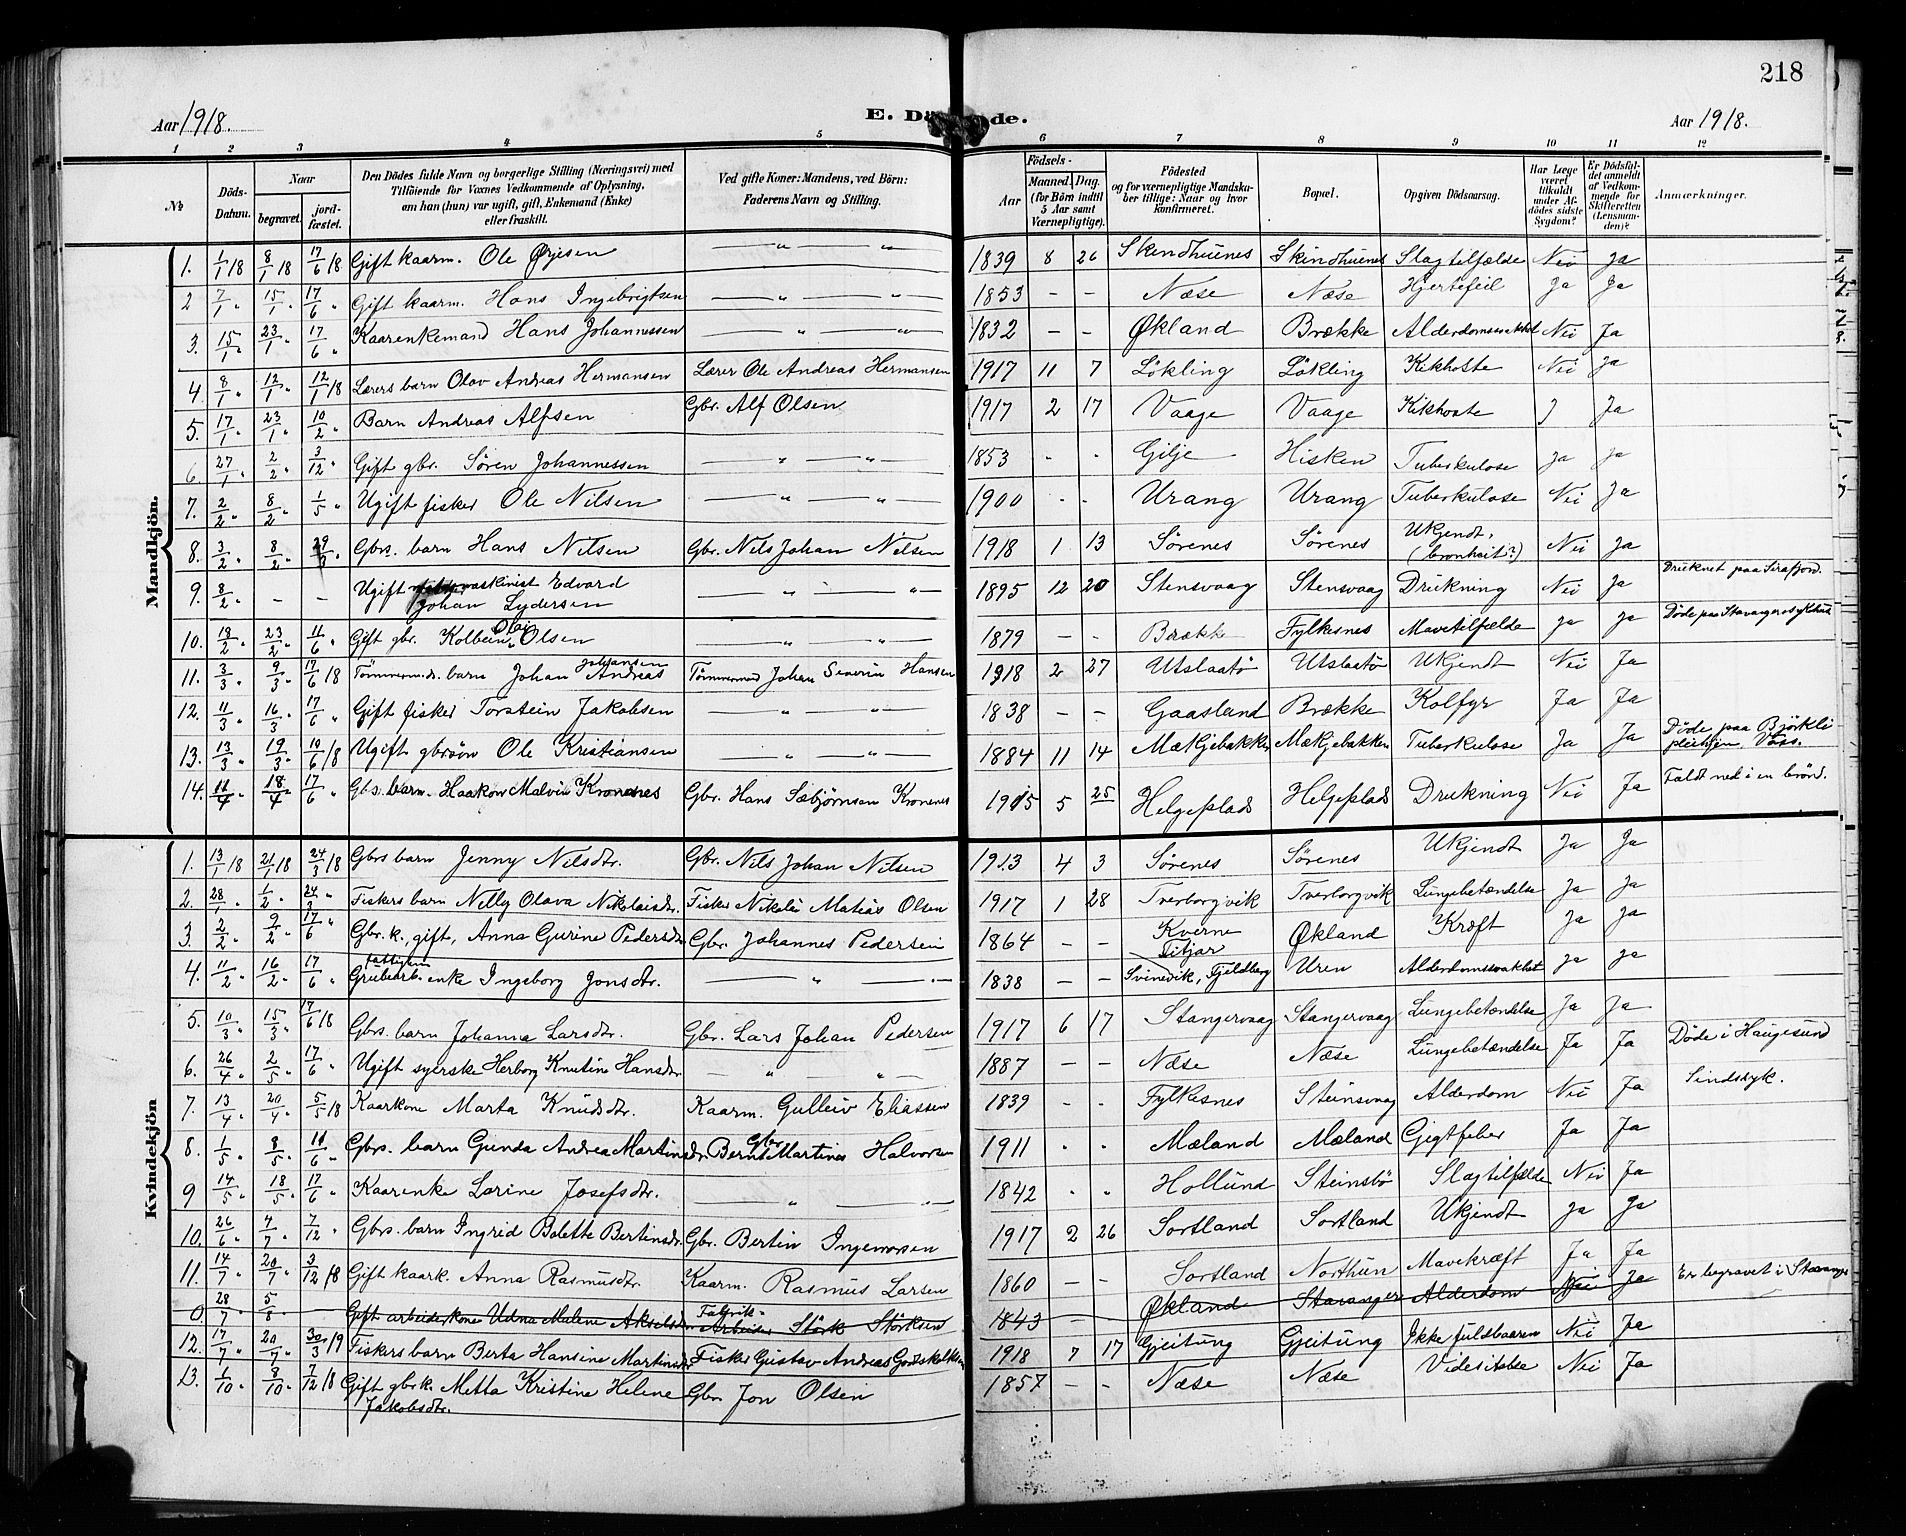 218
Aar 1918. E. Dö de. Aar 1918.
1 2 3 4 5 6 7 8 9 10 11 12
№ Döds-Datum. Naar begravet. jordfæstet. Den Dödes fulde Navn og borgerlige Stilling (Næringsvei) med Tilföiende for Voxnes Vedkommende af Oplysning, om han (hun) var ugift, gift, Enkemand (Enke) eller fraskilt. Ved gifte Koner: Mandens, ved Börn: Faderens Navn og Stilling. Födsels- Aar Maaned. Dag. (for Börn indtil 5 Aar samt Værnepligtige). Födested og for værnepligtige Mandskaber tillige: Naar og hvor konfirmeret. Bopæl. Opgiven Dödsaarsag. Har Læge været tilkaldt under Afdödes sidste Sygdom? Er Dödsfaldet anmeldt af Vedkommende for Skifteretten (Lensmanden)? Anmærkninger.
Mandkjön.
1. 1/1 18 8/1 18 17/6 18 Gift kaarm. Ole Øyesen — " — " — 1839 8 26 Skindhuenes Skindhuenes Slagtilfælde Nei Ja
2 7/1 " 15/1 " 17/6 " Gift kaarm. Hans Ingebrigtsen — " — " — 1853 – – Næse Næse Hjertefeil Ja Ja
3. 15/1 " 23/1 " 17/6 " Kaarenkemand Hans Johannessen — " — " — 1832 – – Økland Brække Alderdomssvakhet Nei Ja
4. 8/1 " 12/1 " 12/1 18 Lærers barn Olav Andreas Hermansen Lærer Ole Andreas Hermansen 1917 11 7 Løkling Løkling Kikhoste Nei Ja
5. 17/1 " 23/1 " 10/2 " Barn Andreas Alfsen Gbr. Alf Olsen 1917 2 17 Vaage Vaage Kikhoste J Ja
6. 27/1 " 2/2 " 3/12 " Gift gbr. Sören Johannessen — " — " — 1853 - - Gilje Hisken Tuberkulose Ja Ja
7. 2/2 " 8/2 " 1/5 " Ugift fisker Ole Nilsen — " — " — 1900 - - Urang Urang Tuberkulose Nei Ja
8. 3/2 " 8/2 " 29/3 " Gbrs. barn Hans Nilsen Gbr. Nils Johan Nilsen 1918 1 13 Sørenes Sørenes Ukjendt, (bronkit?) Nei Ja
9. 8/2 " – – Ugift maskinist Edvard Johan Lydersen — " — " — 1895 12 20 Stensvaag Stensvaag Drukning Nei Ja Druknet paa Sirafjord.
10. 18/2 " 23/2 " 11/6 " Gift gbr. Kolbein Olai Olsen — " — " — 1879 – – Brækk Fylkesnes Mavetilfælde Ja Ja Døde paa Stavanger sykehus
11. 3/3 " 9/3 " 17/6 18 Tömmerm.ds. barn Johan Andreas Johansen Tömmermand Johan Severin Hansen 1918 2 27 Utslaatø Utslaatø Ukjendt Nei Ja
12. 11/3 " 16/3 " 17/6 " Gift fisker Torstein Jakobsen — " — " — 1838 – – Gaasland Brække Kolfyr Ja Ja
13. 13/3 " 19/3 " 10/6 18 Ugift gbrsön Ole Kristiansen — " — " — 1884 11 14 Mækjebakken Mækjebakken Tuberkulose Ja Ja Døde paa Bjørkli pleiehjem Voss.
14. 11/4 " 18/4 " 17/6 " Gbs. barn. Haakon Malvin Kronenes Gbr. Hans Sæbjörnsen Kronenes 1915 5 25 Helgeplads Helgeplads Drukning Nei Ja Faldt ned i en brønd.
Kvindekjön
1. 13/1 18 21/1 18 24/3 18 Gbrs barn Jenny Nilsdtr. Gbr. Nils Johan Nilsen 1913 4 3 Sørenes Sørenes Ukjendt Ja Ja
2. 28/1 " 1/2 " 24/3 " Fiskers barn Nelly Olava Nikolaisdtr. Fisker Nikolai Matias Olsen 1917 1 28 Tverborgvik Tverborgvik Lungebetændelse Ja Ja
3. 2/2 " 9/2 " 17/6 Gbr. k., gift, Anna Gurine Pedersdtr Gbr. Johannes Pedersen 1864 – – Kverne Fitjar Økland Kræft Ja Ja
4. 11/2 " 16/2 " 17/6 " Grubearb. enke fattiglem Ingeborg Jonsdtr. — " — " — 1838 – – Svinevik, Fjeldberg Uren Alderdomssvakhet Ja Ja
5. 10/3 " 15/3 " 17/6 18 Gbrs. barn Johanna Larsdtr. Gbr. Lars Johan Pedersen 1917 6 17 Stangervaag Stangervaag Lungebetændelse Ja Ja
6. 26/4 " 2/5 " 17/6 " Ugift syerske Herborg Knutine Hansdtr. — " — " — 1887 – – Næse Næse Lungebetændelse Ja Ja Døde i Haugesund
7. 13/4 " 20/4 " 5/5 18 Kaarkone Marta Knudsdtr. Kaarm. Gulleiv Eliassen 1839 - - Fylkesnes Steinsvaag Alderdom Nei Ja Sindssyk.
8. 1/5 " 8/5 " 10/6 " Gbrs. barn Gunda Andrea Martinsdtr. Gbr Bernt Martines Halvorsen 1911 " " Mæland Mæland Gigtfeber Ja Ja
9 14/5 " 18/5 " 17/6 " Kaarenke Lorine Josefsdtr. — " — " — 1842 " " Hollund Steinsbö Slagtilfælde Nei Ja
10. 26/6 " 4/7 " 7/12 " Gbrs. barn Ingrid Bolette Bertinsdtr. Gbr. Bertin Ingemarsen 1917 2 26 Sortland Sortland Ukjendt Ja Ja
11. 14/7 " 20/7 " 3/12 18 Gift kaark. Anna Rasmusdtr. Kaarm. Rasmus Larsen 1860 – – Sortland Northun Mavekræft Ja Ja
0. 28/7 5/8 Gift arbeiderkone Udna Malene Akselsdtr. Fabrik- Arbeider Störk Störksen 1843 – Økland Stavanger Alderdom Nei Ja Er begravet i Stavanger
12. 17/7 " 20/7 " 30/3 19 Fiskers barn Berta Hansine Martinsdtr Fisker Gustav Andreas Godskalksen 1918 7 17 Gjeitung Gjeitung Ikke fuldbaaren Nei Ja
13. 1/10 " 8/10 " 7/12 18 Gift gbrk. Metta Kristine Helene Jakobsdtr. Gbr. Jon Olsen 1857 – – Næse Næse Nei Ja